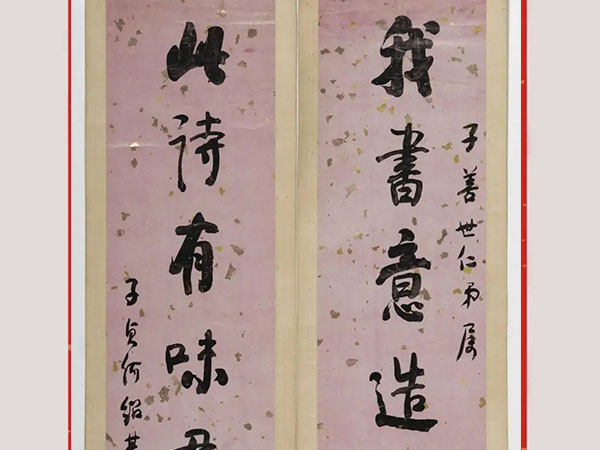 我書意造
子善世仁弟属
此詩有味君
子貞何紹基